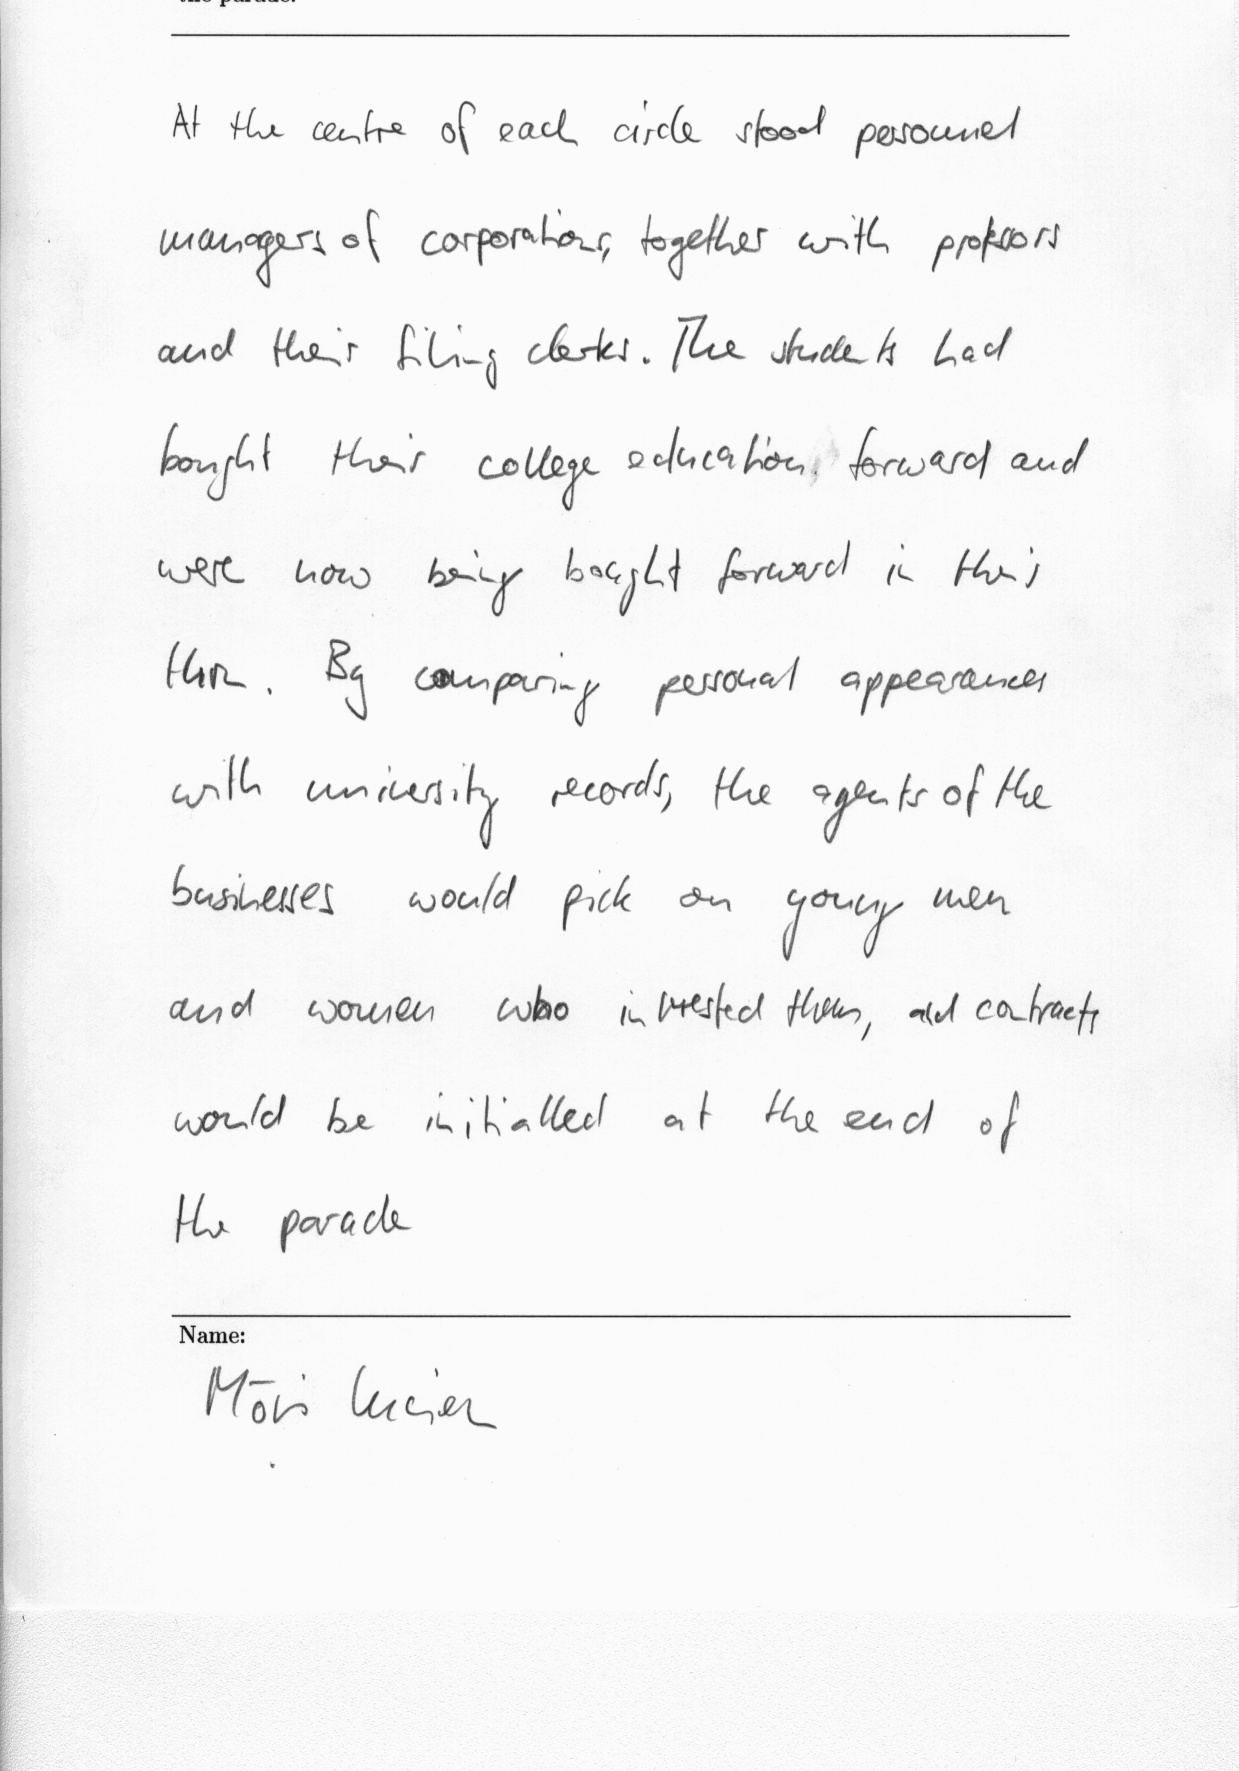 the parade.
At the centre of each circle stood personnel
managers of corporations, together with professors
and their filing clerks. The students had
bought their college education forward and
were now being bought forward in their
turn. By comparing personal appearances
with university records, the agents of the
businesses would pick on young men
and women who interested them, and contracts
would be initialled at the end of
the parade
Name: